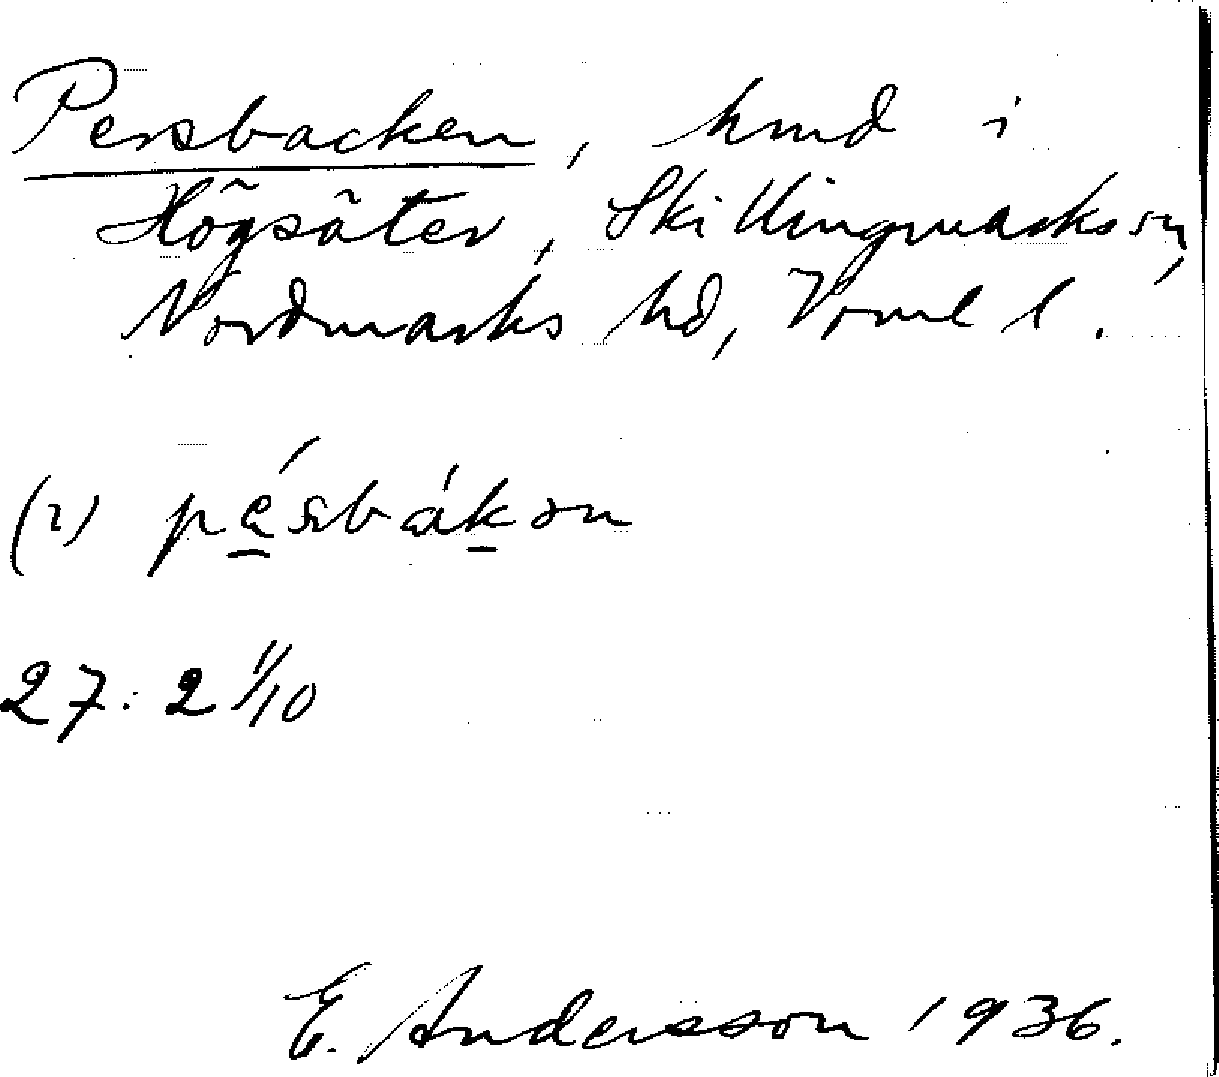 Persbacken, hmd i
Högsäter, Skillingmarks sn,
Nordmarks hd, Vrml l.
(2)
27: 2 11/10
E. Andersson 1936.